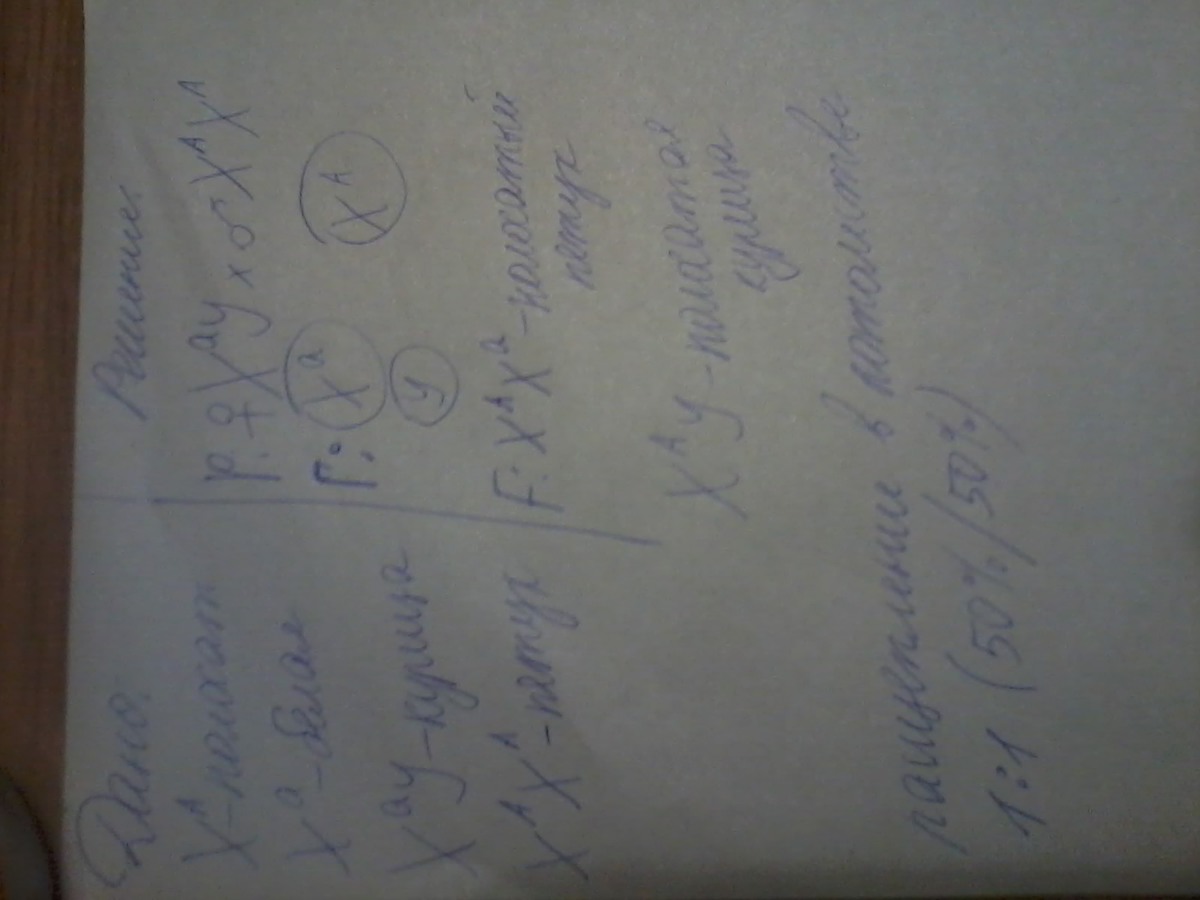 Дано:
X^A - полосат
X^a - белая
X^a y - курица
X^A X^A - петух
Решение:
P: ♀ X^a y x ♂ X^A X^A
Г: X^a X^A
y
F: X^A X^a - полосатый
петух
X^A y - полосатая
курица
расщепление в потомстве
1:1 (50%/50%)